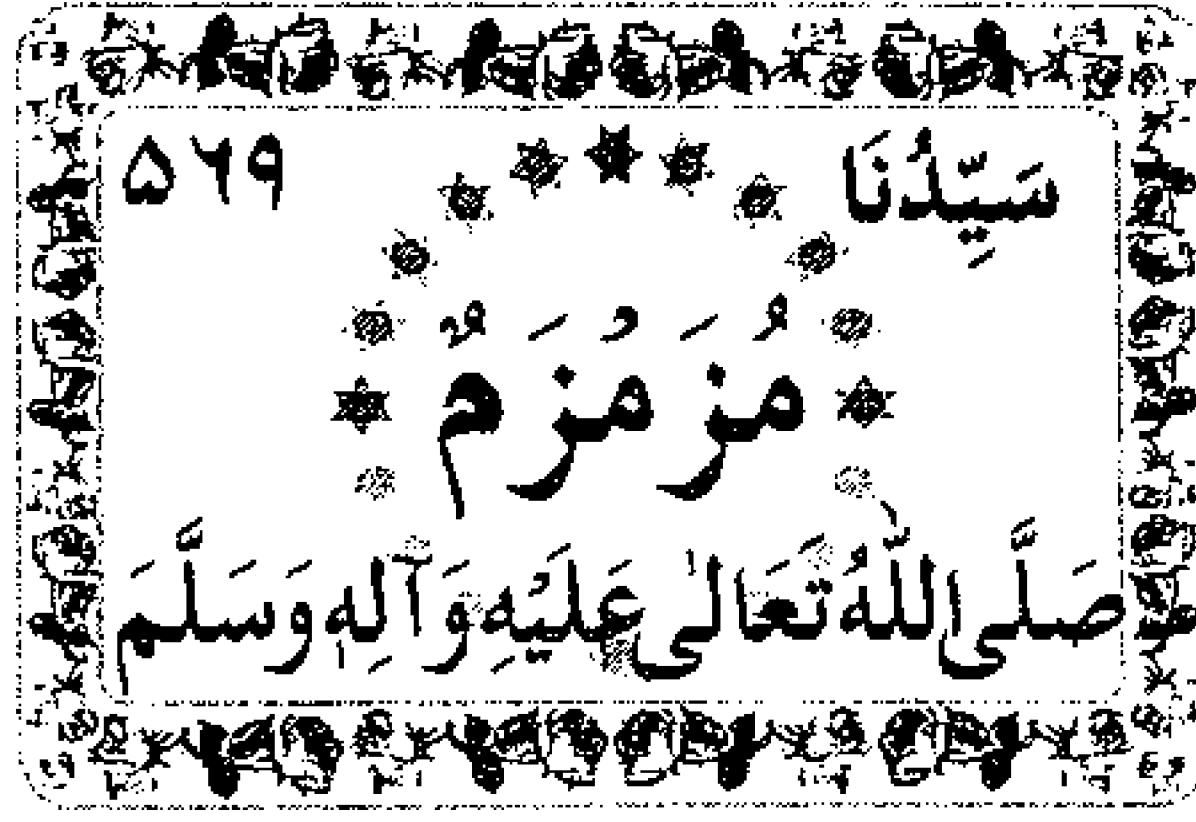 سَيِّدُنَا ۵۶۹
مُزَمُزَمٌ
صَلَّى اللّٰهُ تَعَالٰى عَلَيْهِ وَآلِهٖ وَسَلَّمَ